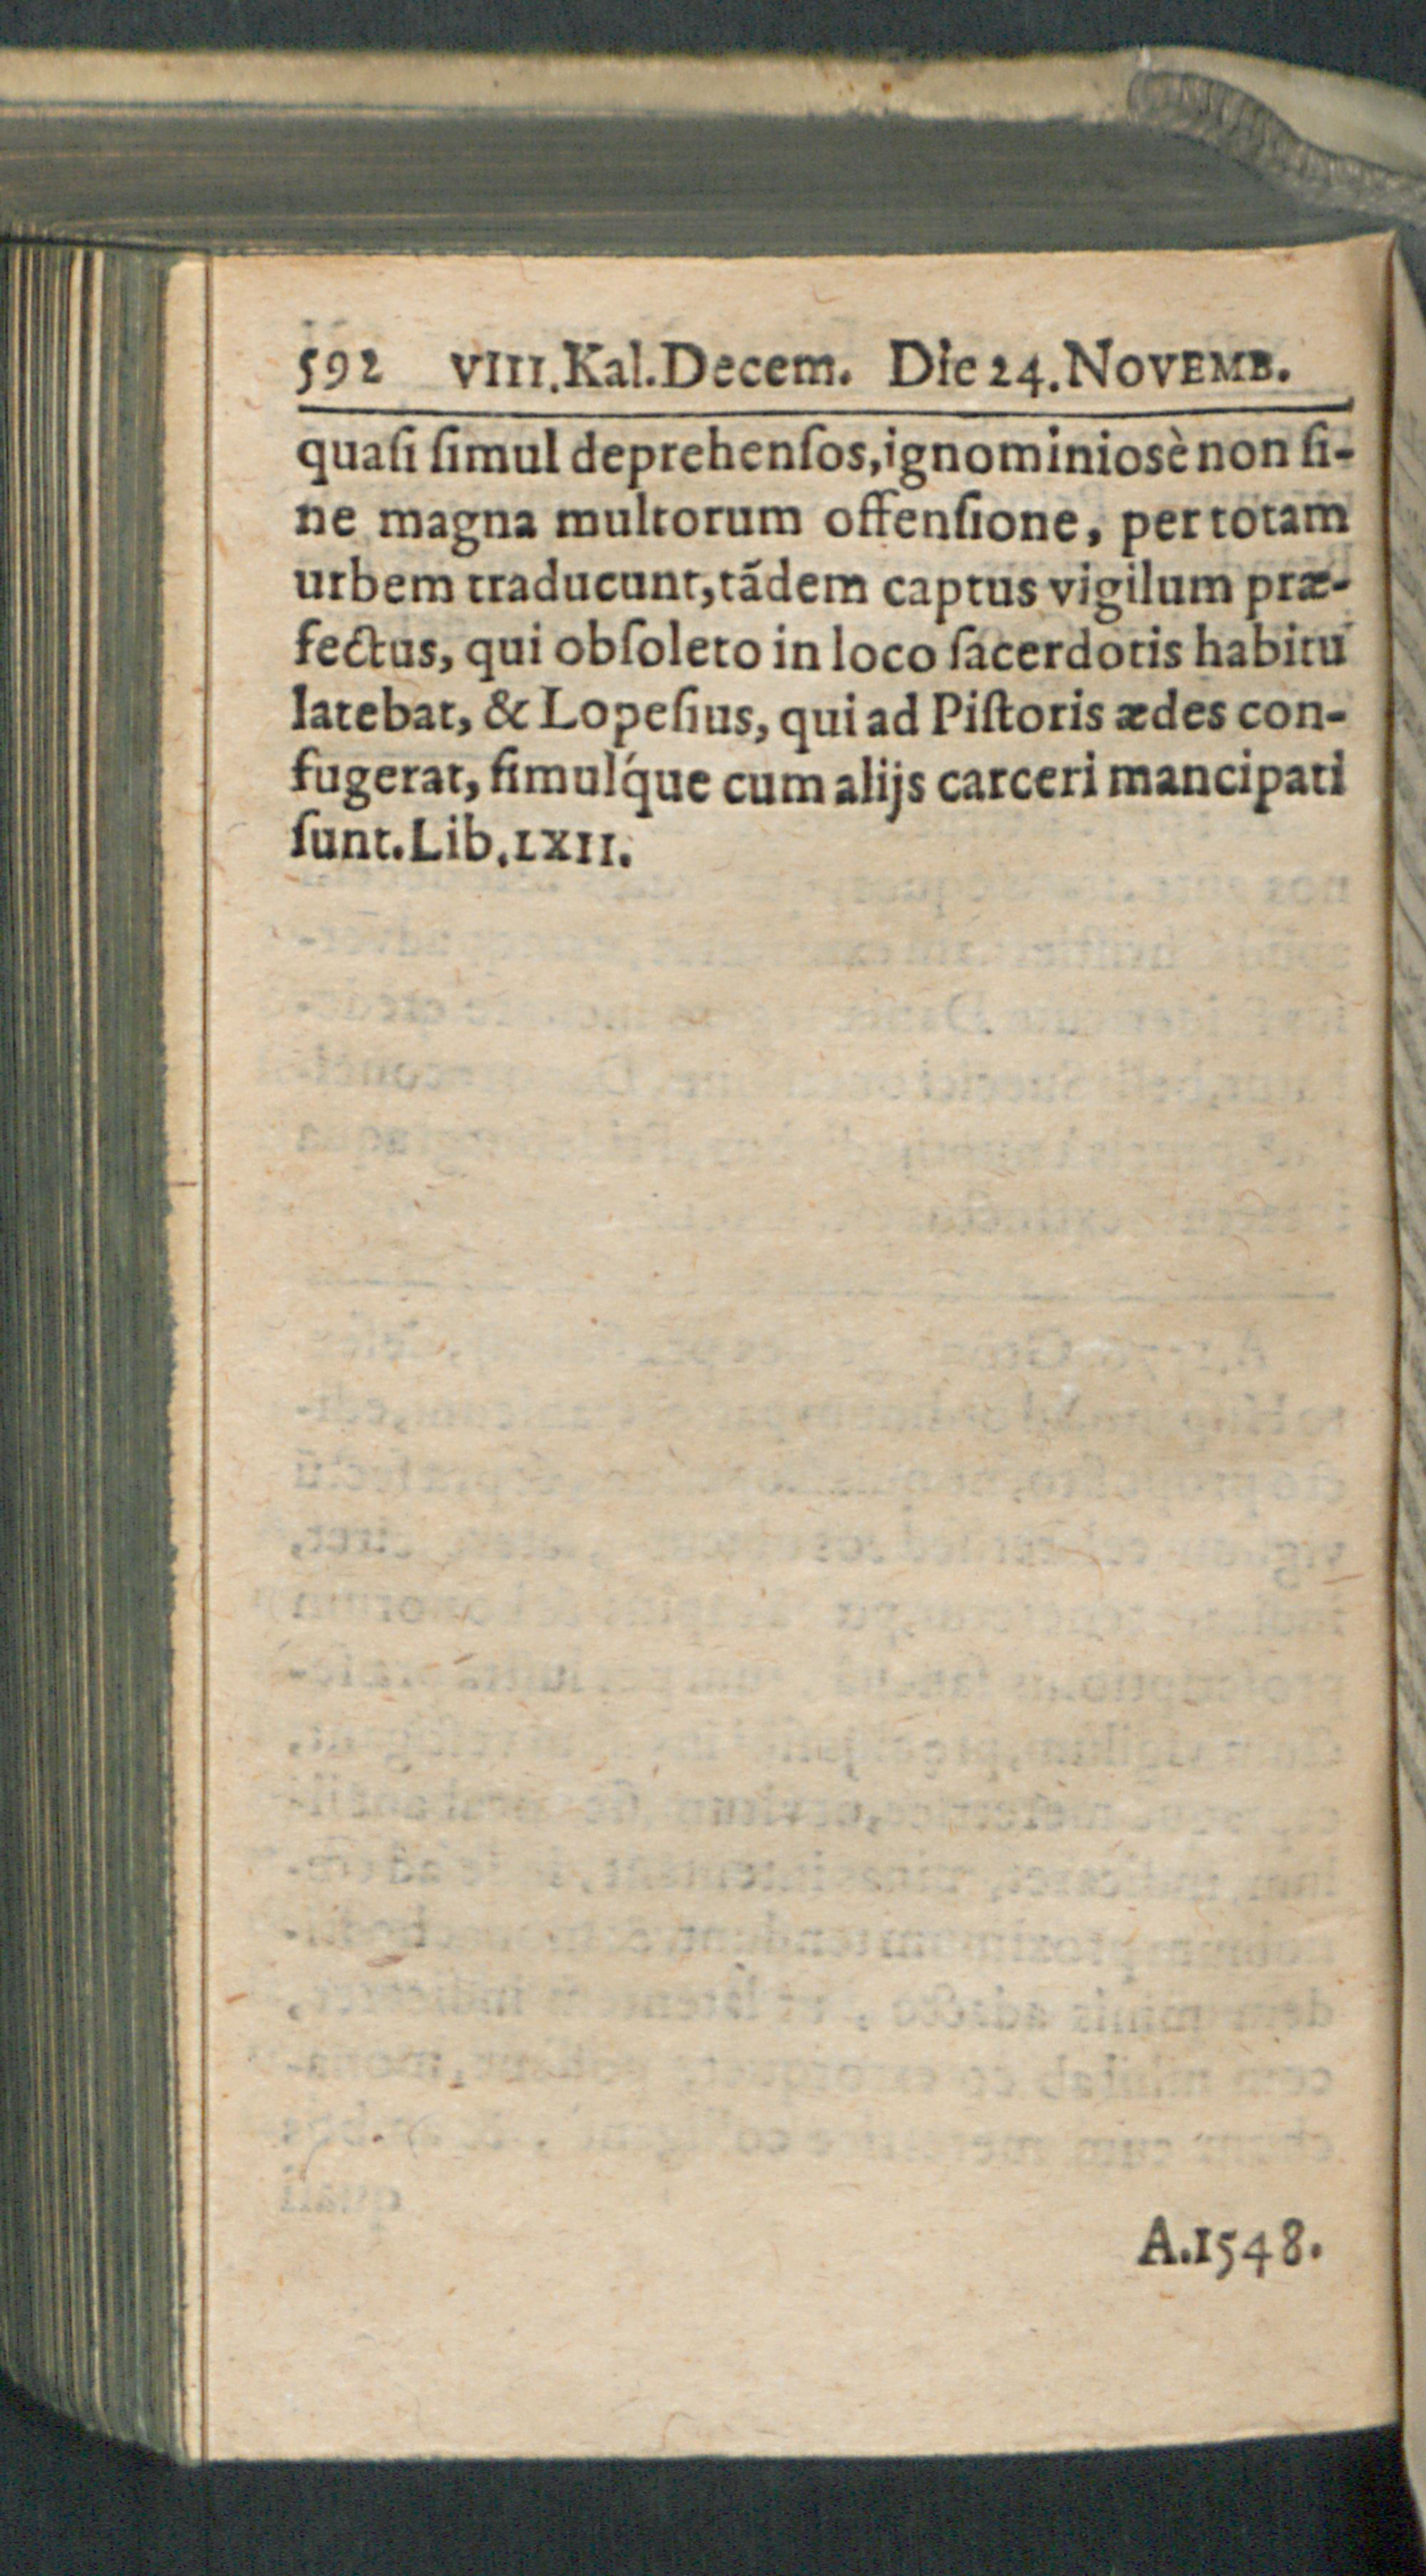 592 VIII. Kal. Decem. Die 24. NOVEMB.
quaſi ſimul deprehenſos, ignominiosè non ſi-
ne magna multorum offenſione, per totam
urbem traducunt, tãdem captus vigilum præ-
fectus, qui obſoleto in loco ſacerdotis habitu
latebat, & Lopeſius, qui ad Piſtoris ædes con-
fugerat, ſimulq́ue cum alijs carceri mancipati
ſunt. Lib. LXII.
A. 1548.